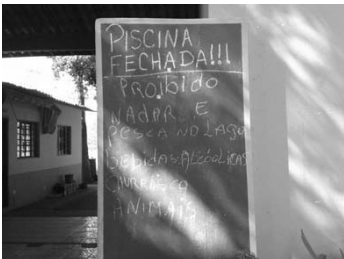 PISCINA
FECHADA!!!
PROIBIDO
NADAR E
PESCA NO LAGO
BEBIDAS ALCÓOLICAS
CHURRASCO
ANIMAIS